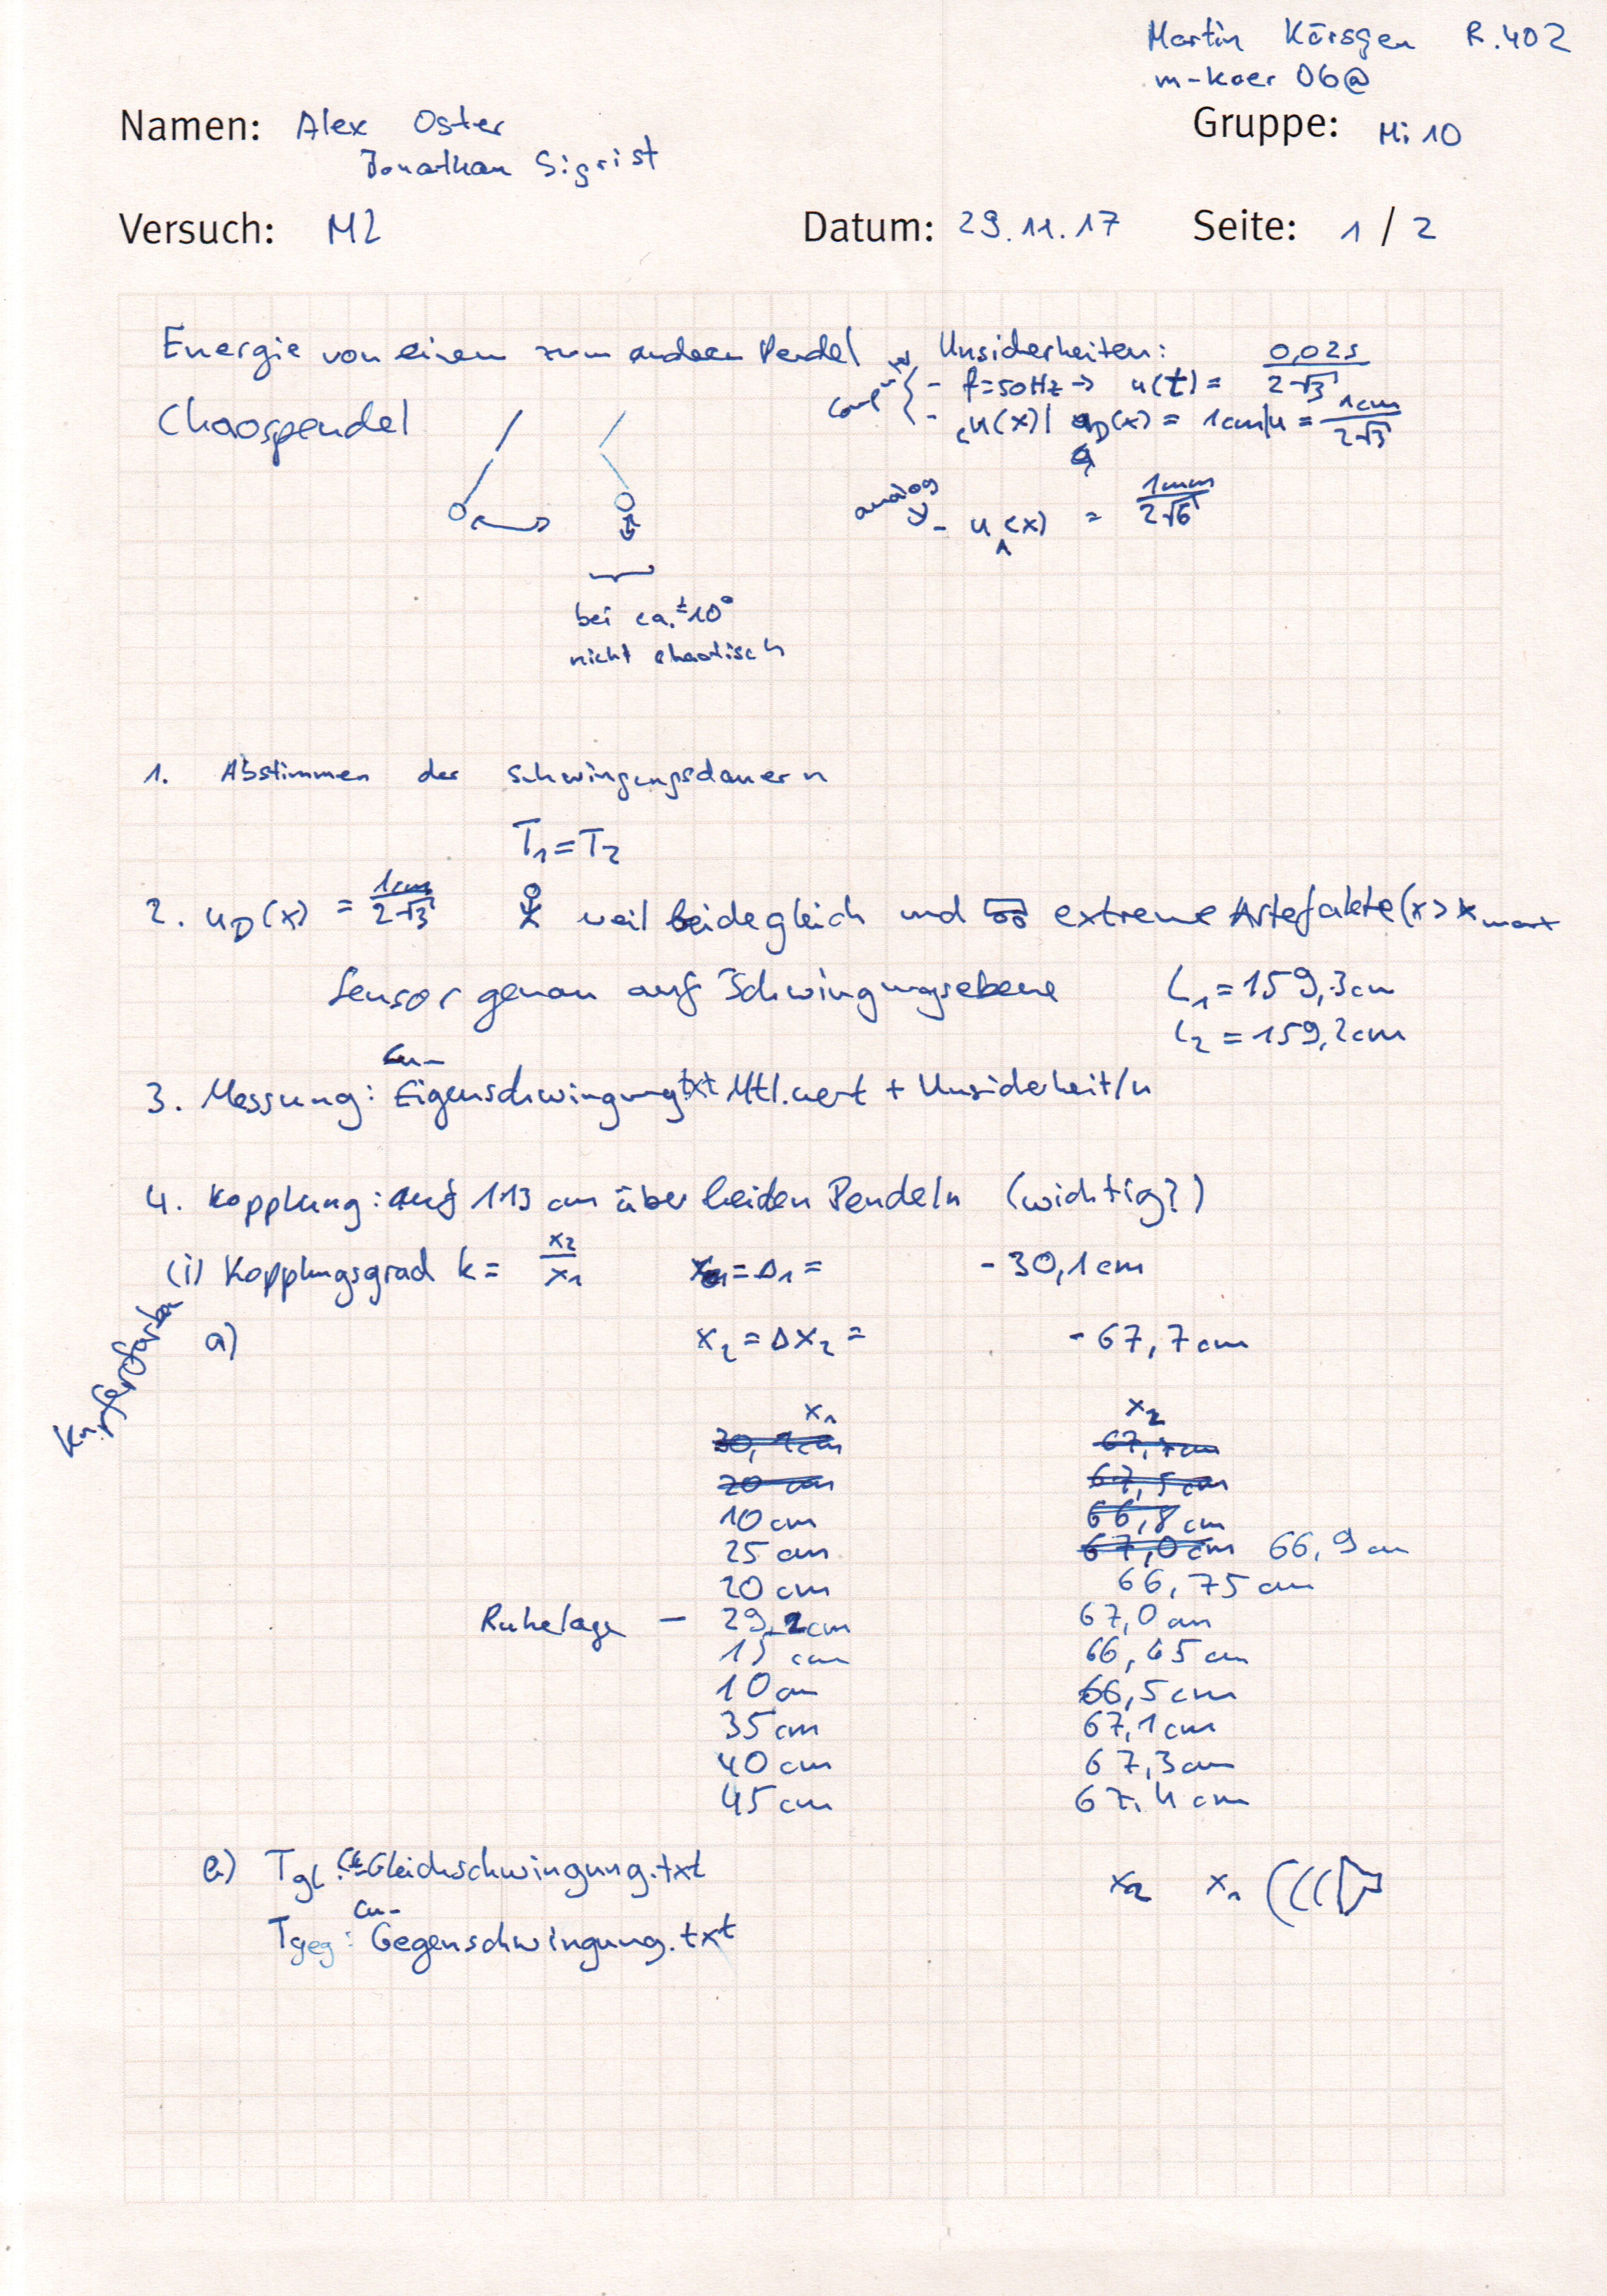 Martin Körsgen R.402
m-koer 06@
Namen: Alex Oster
Jonathan Sigrist
Gruppe: Mi 10
Versuch: M2
Datum: 29.11.17 Seite: 1 / 2
Energie von einem zum anderen Pendel
Unsicherheiten:
- f=50Hz → u(t) = 0,02s / 2√3
(x) = 1cm | u = 1cm / 2√3
Chaospendel
analog
- u (x) = 1mm / 2√6
bei ca. ±10°
nicht chaotisch
1. Abstimmen der Schwingungsdauern
T₁=T₂
2. u_D(x) = 1cm / 2√3 weil beide gleich und extreme Artefakte (x > x_max
Sensor genau auf Schwingungsebene
L₁ = 159,3cm
L₂ = 159,2cm
Cu-
3. Messung: Eigenschwingung.txt Mtl.wert + Unsicherheit/n
4. Kopplung: auf 113 cm über beiden Pendeln (wichtig?)
(i) Kopplungsgrad k = x₂ / x₁ = Δ₁ = - 30,1cm
a) x₂ = Δx₂ = - 67,7cm
Kupferfarben
x₁ x₂
30,1cm 67,7cm
20 cm 67,5 cm
10 cm 66,8 cm
25 cm 67,0cm 66,9cm
20 cm 66,75 cm
Ruhelage - 29,2cm 67,0cm
15 cm 66,65 cm
10cm 66,5cm
35cm 67,1cm
40 cm 67,3cm
45 cm 67,4 cm
T_gl: Cu-Gleichschwingung.txt
x₂ x₁
Cu-
T_geg: Gegenschwingung.txt